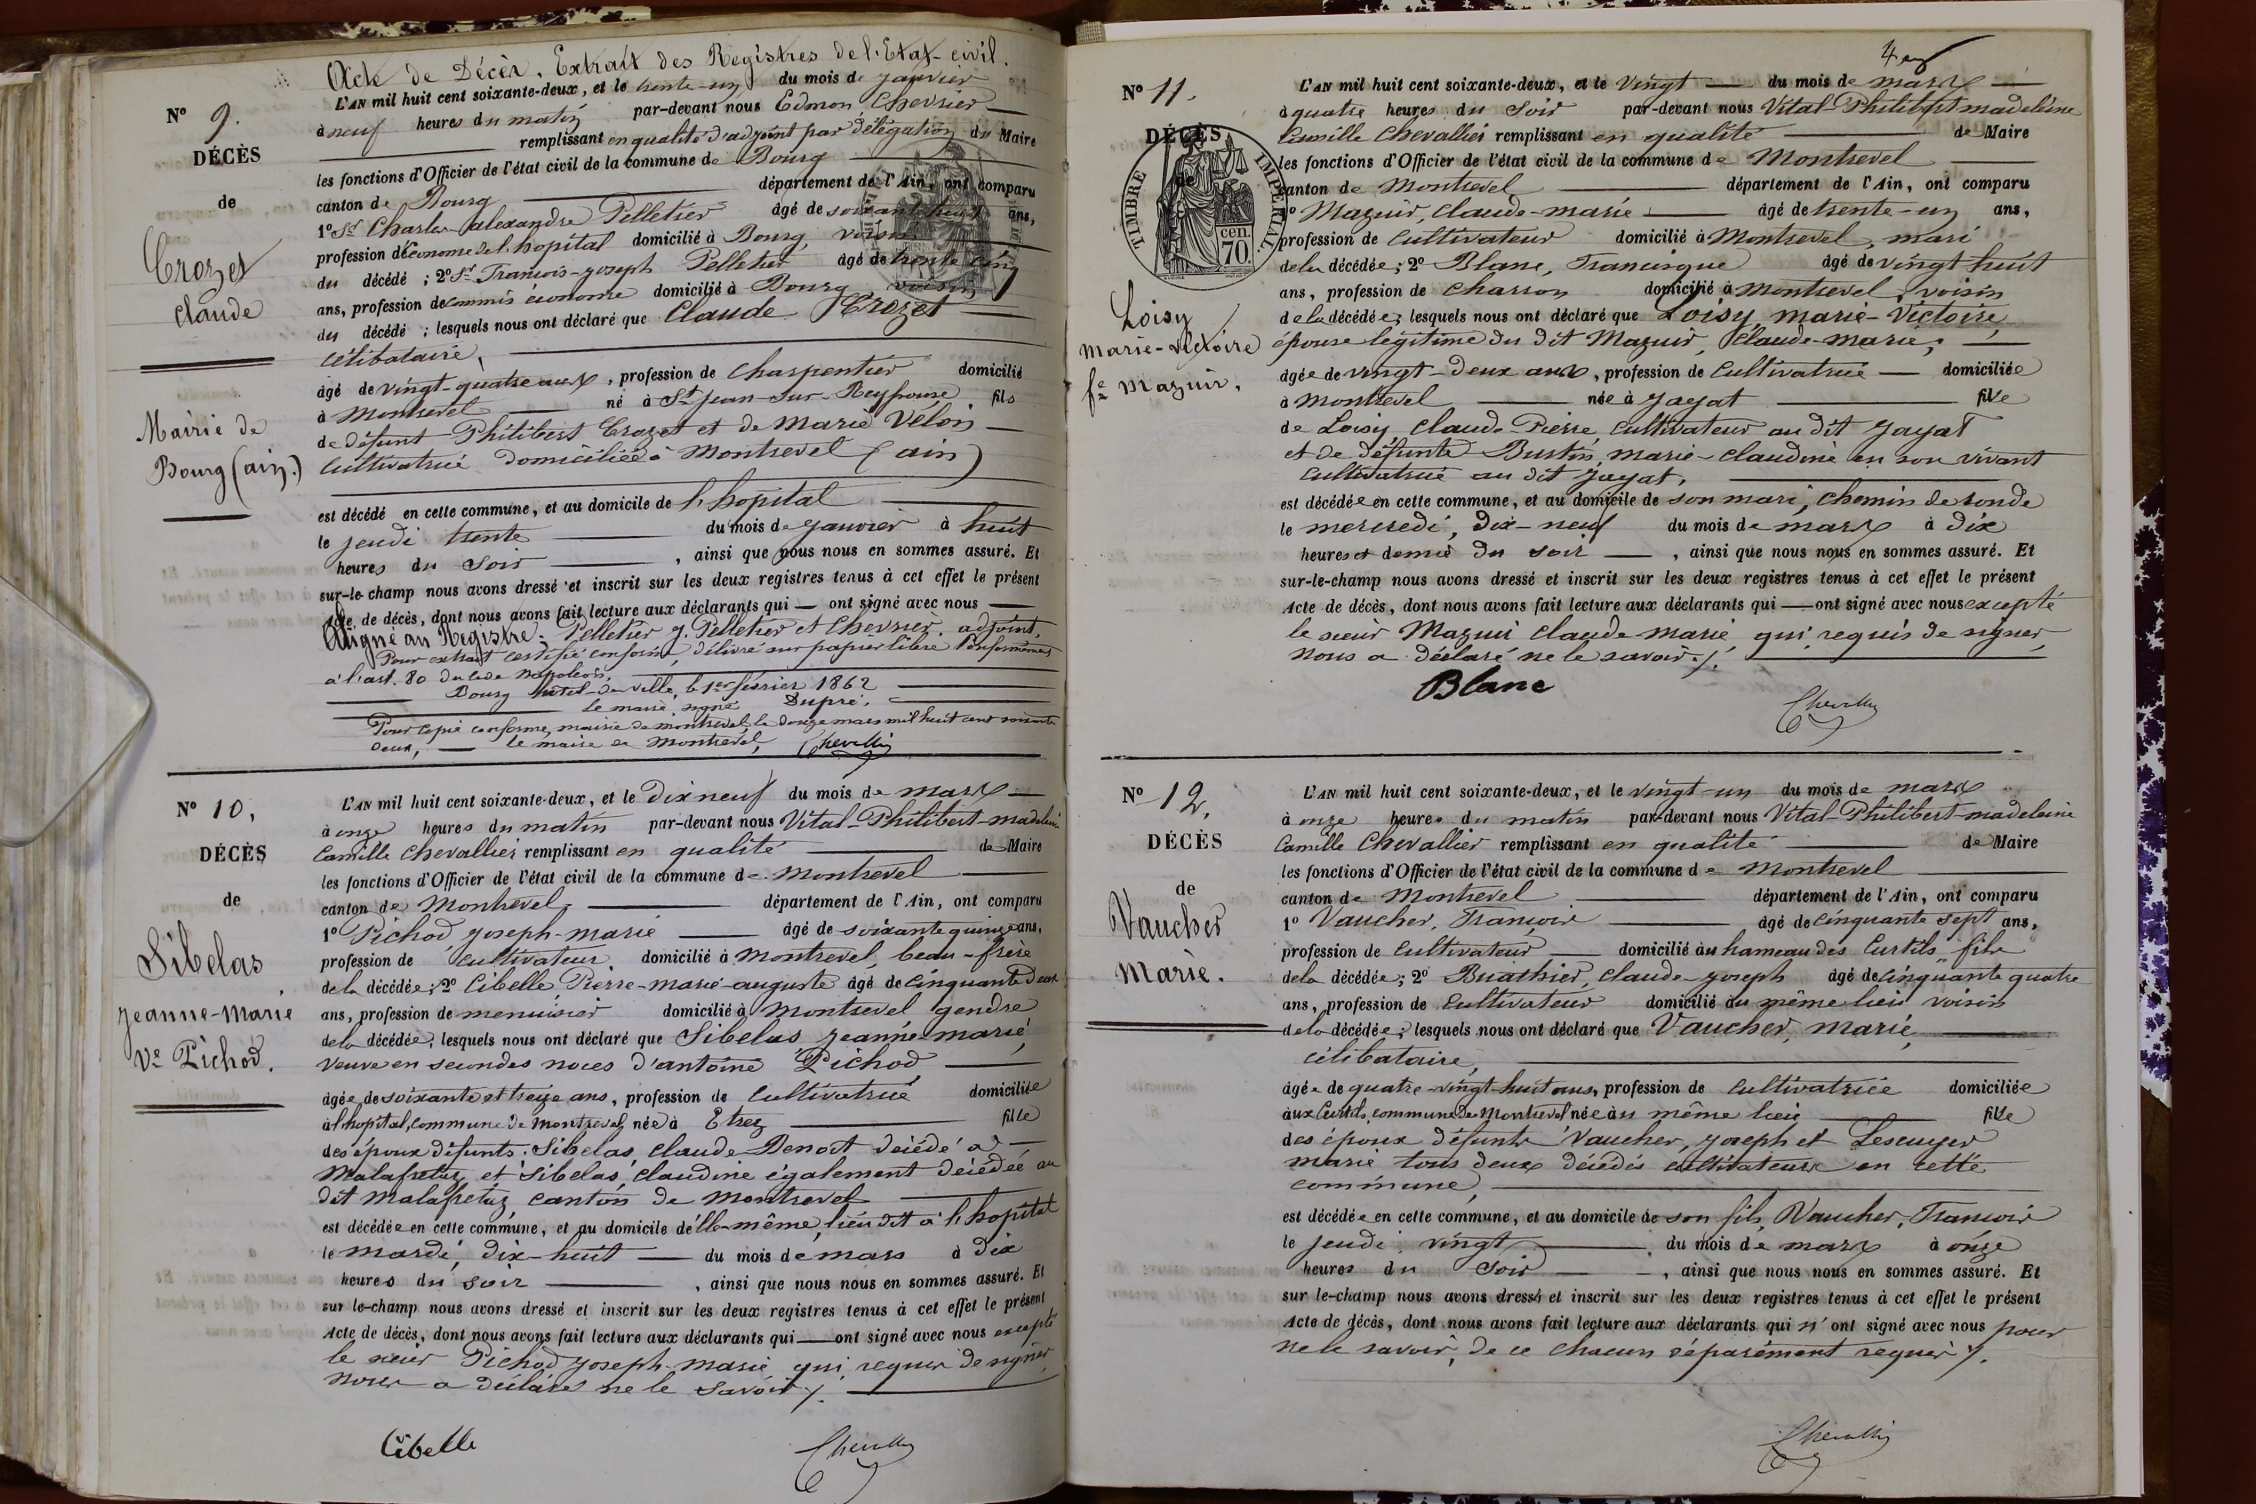 Acte de Décès. Extrait des Registres de l'Etat-civil.
N° 9.
DÉCÈS
de
Crozet
Claude
Mairie de
Bourg (ain.)
L'AN mil huit cent soixante-deux, et le trente-un du mois de janvier
à neuf heures du matin par-devant nous Edmon Chevrier
remplissant en qualité d'adjoint par délégation du Maire
les fonctions d'Officier de l'état civil de la commune de Bourg
canton de Bourg département de l'Ain, ont comparu
1° Sr Charles alexandre Pelletier âgé de soixante huit ans,
profession d'économe de l'hopital domicilié à Bourg, voisin
du décédé ; 2° Sr Francois-joseph Pelletier âgé de trente cinq
ans, profession de commis économe domicilié à Bourg, voisin
du décédé ; lesquels nous ont déclaré que Claude Crozet
célibataire,
âgé de vingt-quatre ans, profession de Charpentier domicilié
à Montrevel né à St jean-sur-Reyssouse fils
de défunt Philibert Crozet et de Marie Veloin
cultivatrice domiciliée à Montrevel (ain)
est décédé en cette commune, et au domicile de l'hopital
le jeudi trente du mois de janvier à huit
heures du soir, ainsi que nous nous en sommes assuré. Et
sur-le-champ nous avons dressé et inscrit sur les deux registres tenus à cet effet le présent
Acte de décès, dont nous avons fait lecture aux déclarants qui ont signé avec nous
Signé au Registre: Pelletier j. Pelletier et Chevrier. adjoint.
Pour extrait certifié conforme, délivré sur papier libre conformément
à l'art. 80 du Code Napoléon.
Bourg hôtel-de-ville, le 1er février 1862
Le maire, signé Dupré.
Pour copie conforme, mairie de montrevel, le douze mars mil huit cent soixante
deux, le maire de Montrevel, Chevallier
N° 10,
DÉCÈS
de
Sibelas
jeanne-Marie
Ve Pichod.
L'AN mil huit cent soixante-deux, et le Dix neuf du mois de mars
à onze heures du matin par-devant nous Vital-Philibert-madeleine
Camille Chevallier remplissant en qualité de Maire
les fonctions d'Officier de l'état civil de la commune de Montrevel
canton de Montrevel département de l'Ain, ont comparu
1° Pichod joseph-marie âgé de soixante quinze ans,
profession de cultivateur domicilié à Montrevel, beau-frère
de la décédée; 2° Cibelle Pierre-marie-auguste âgé de cinquante deux
ans, profession de menuisier domicilié à Montrevel gendre
de la décédée; lesquels nous ont déclaré que Sibelas jeanne-marie,
veuve en secondes noces d'antoine Pichod
âgée de soixante et treize ans, profession de cultivatrice domiciliée
à l'hopital, commune de Montrevel née à Etrez fille
des époux défunts Sibelas, claude Benoit décédé à
Malafretaz, et Sibelas, claudine également décédée au
dit Malafretaz, canton de Montrevel
est décédée en cette commune, et au domicile d'elle-même, lieu dit à l'hopital
le mardi, dix-huit du mois de mars à dix
heures du soir, ainsi que nous nous en sommes assuré. Et
sur le-champ nous avons dressé et inscrit sur les deux registres tenus à cet effet le présent
Acte de décès, dont nous avons fait lecture aux déclarants qui ont signé avec nous excepté
le sieur Pichod joseph-marie qui, requis de signer,
nous a déclaré ne le savoir ./.
Cibelle Chevallier
N° 11.
DÉCÈS
TIMBRE IMPÉRIAL
cen. 70.
Loisy
Marie-Victoire
fe Mazuir.
L'AN mil huit cent soixante-deux, et le Vingt du mois de mars
à quatre heures du soir par-devant nous Vital-Philibert madeleine
Camille Chevallier remplissant en qualité de Maire
les fonctions d'Officier de l'état civil de la commune de Montrevel
canton de Montrevel département de l'Ain, ont comparu
1° Mazuir, claude-marie âgé de trente-un ans,
profession de cultivateur domicilié à Montrevel, mari
de la décédée; 2° Blanc, Francisque âgé de vingt huit
ans, profession de charron domicilié à Montrevel, voisin
de la décédée; lesquels nous ont déclaré que Loisy, marie-Victoire,
épouse légitime du dit Mazuir, Claude-marie,
âgée de vingt-deux ans, profession de Cultivatrice domiciliée
à Montrevel née à jayat fille
de Loisy claude-Pierre, cultivateur au dit jayat
et de défunte Burtin marie-claudine en son vivant
cultivatrice au dit jayat,
est décédée en cette commune, et au domicile de son mari, chemin de ronde
le mercredi, dix-neuf du mois de mars à dix
heures et demie du soir, ainsi que nous nous en sommes assuré. Et
sur-le-champ nous avons dressé et inscrit sur les deux registres tenus à cet effet le présent
Acte de décès, dont nous avons fait lecture aux déclarants qui ont signé avec nous excepté
le sieur Mazuir claude-marie qui, requis de signer,
nous a déclaré ne le savoir ./.
Blanc Chevallier
N° 12.
DÉCÈS
de
Vaucher
Marie.
L'AN mil huit cent soixante-deux, et le vingt-un du mois de mars
à onze heures du matin par-devant nous Vital-Philibert-madeleine
Camille Chevallier remplissant en qualité de Maire
les fonctions d'Officier de l'état civil de la commune de Montrevel
canton de Montrevel département de l'Ain, ont comparu
1° Vaucher, Francois âgé de cinquante sept ans,
profession de cultivateur domicilié au hameau des Curtils fils
de la décédée; 2° Buathier, claude-joseph âgé de cinquante quatre
ans, profession de cultivateur domicilié au même lieu voisin
de la décédée; lesquels nous ont déclaré que Vaucher, marie,
célibataire,
âgée de quatre-vingt-huit ans, profession de cultivatrice domiciliée
aux Curtils, commune de Montrevel née au même lieu fille
des époux défunts Vaucher, joseph et Lescuyer
marie tous deux décédés cultivateurs en cette
commune,
est décédée en cette commune, et au domicile de son fils, Vaucher, Francois
le jeudi vingt du mois de mars à onze
heures du soir, ainsi que nous nous en sommes assuré. Et
sur le-champ nous avons dressé et inscrit sur les deux registres tenus à cet effet le présent
Acte de décès, dont nous avons fait lecture aux déclarants qui n'ont signé avec nous pour
ne le savoir, de ce chacun séparément requis ./.
Chevallier